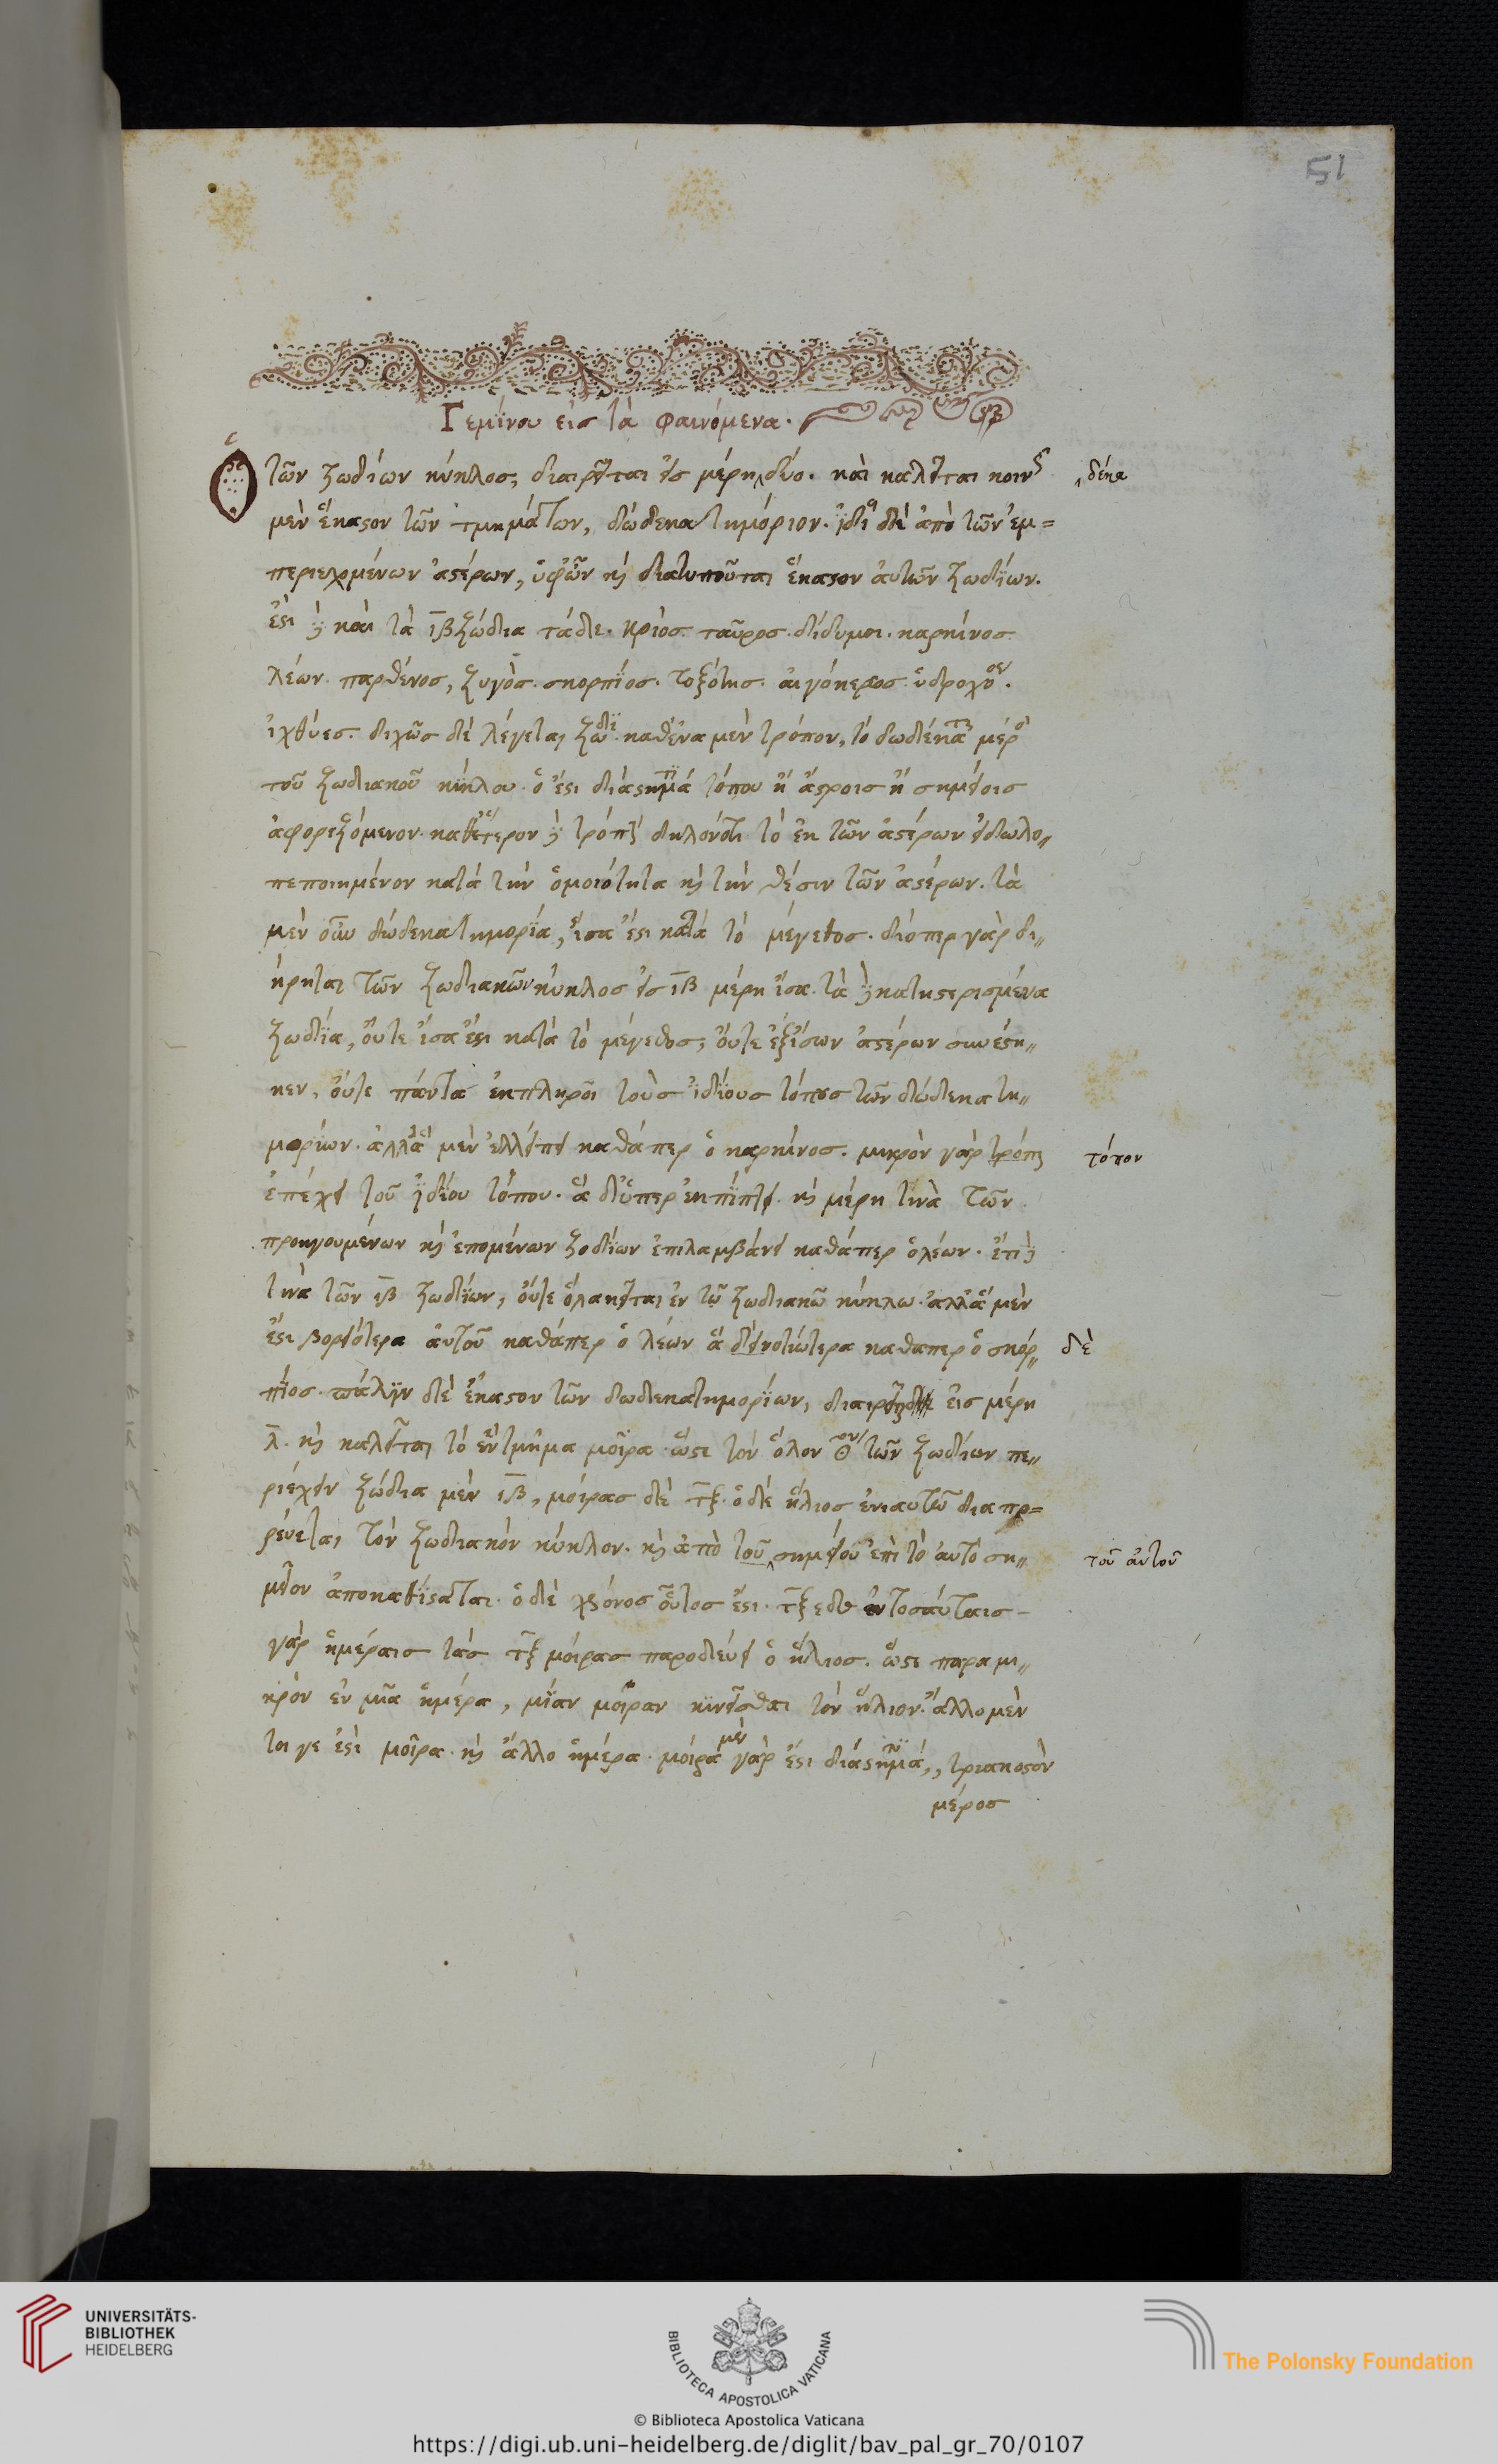 51
Γεμίνου εἰς τὰ φαινόμενα.
Ὁ τῶν ζωδίων κύκλος, διαιρεῖται εἰς μέρη δύο. καὶ καλεῖται κοινῶς
δέκα
μὲν ἕκαστον τῶν τμημάτων, δωδεκατημόριον. ἰδία δὲ ἀπὸ τῶν ἐμ=
περιεχομένων ἀστέρων, ὑφ᾽ ὧν καὶ διατυποῦται ἕκαστον αὐτῶν ζωδίων.
ἐστὶ δὲ καὶ τὰ ιβ ζώδια τάδε. κριὸς. ταῦρος. δίδυμοι. καρκίνος.
λέων. παρθένος, ζυγὸς. σκορπίος. τοξότης. αἰγόκερος. ὑδροχόος.
ἰχθύες. διχῶς δὲ λέγεται ζώδιον. καθ᾽ ἕνα μὲν τρόπον, τὸ δωδέκατον μέρος
τοῦ ζωδιακοῦ κύκλου. ὅ ἐστι διάστημά τι τόπου ἢ ἄστροις ἢ σημείοις
ἀφοριζόμενον. καθ᾽ ἕτερον δὲ τρόπον δηλονότι τὸ ἐκ τῶν ἀστέρων εἰδωλο„
πεποιημένον κατὰ τὴν ὁμοιότητα καὶ τὴν θέσιν τῶν ἀστέρων. τὰ
μὲν οὖν δωδεκατημορία, ἴσα ἐστὶ κατὰ τὸ μέγεθος. διόπερ γὰρ δι„
ήρηται τῶν ζωδιακῶν κύκλος εἰς ιβ μέρη ἴσα. τὰ δὲ κατηστερισμένα
ζωδία, οὔτε ἴσα ἐστὶ κατὰ τὸ μέγεθος, οὔτε ἐξ ἴσων ἀστέρων συνέστη„
κεν, οὔτε πάντα ἐκπληροῖ τοὺς ἰδίους τόπους τῶν δώδεκα τη„
μορίων. ἀλλὰ ἃ μὲν ἐλλείπει καθάπερ ὁ καρκίνος. μικρὸν γὰρ τρόπον
τόπον
ἐπέχει τοῦ ἰδίου τόπου. ἃ δ᾽ ὑπερεκπίπτει. καὶ μέρη τινὰ τῶν
προηγουμένων καὶ ἑπομένων ζοδίων ἐπιλαμβάνει καθάπερ ὁ λέων. ἔτι δὲ
τινὰ τῶν ιβ ζωδίων, οὔτε ὅλα κεῖται ἐν τῷ ζωδιακῷ κύκλω. ἀλλ᾽ ἃ μὲν
ἐστι βορειότερα αὐτοῦ καθάπερ ὁ λέων ἃ δὲ νοτιώτερα καθαπερ ὁ σκορ„
δὲ
πίος. πάλιν δὲ ἕκαστον τῶν δωδεκατημορίων, διαιρεῖται εἰς μέρη
λ. καὶ καλεῖται τὸ ἓν τμῆμα μοῖρα. ὥστε τὸν ὅλον ʘον τῶν ζωδίων πε„
ριέχειν ζώδια μὲν ιβ, μοίρας δὲ τξ. ὁ δὲ ἥλιος ἐνιαυτῷ διαπο=
ρεύεται τὸν ζωδιακὸν κύκλον. καὶ ἀπὸ τοῦ σημείου ἐπὶ τὸ αὐτὸ ση„
τοῦ αὐτοῦ
μεῖον ἀποκαθίσταται. ὁ δὲ χρόνος οὗτος ἐστὶ. τξεδ ἐν τοσαύταις
γὰρ ἡμέραις τὰς τξ μοίρας παροδεύει ὁ ἥλιος. ὥστε παρα μι„
κρὸν ἐν μιᾶ ἡμέρα, μίαν μοῖραν κινεῖσθαι τὸν ἥλιον. ἄλλο μὲν
τοι γε ἐστὶ μοῖρα. καὶ ἄλλο ἡμέρα. μοίρα μὲν γὰρ ἐστι διάστημά,, τριακοστὸν
μέρος
UNIVERSITÄTS-
BIBLIOTHEK
HEIDELBERG
BIBLIOTECA APOSTOLICA VATICANA
The Polonsky Foundation
© Biblioteca Apostolica Vaticana
https://digi.ub.uni-heidelberg.de/diglit/bav_pal_gr_70/0107